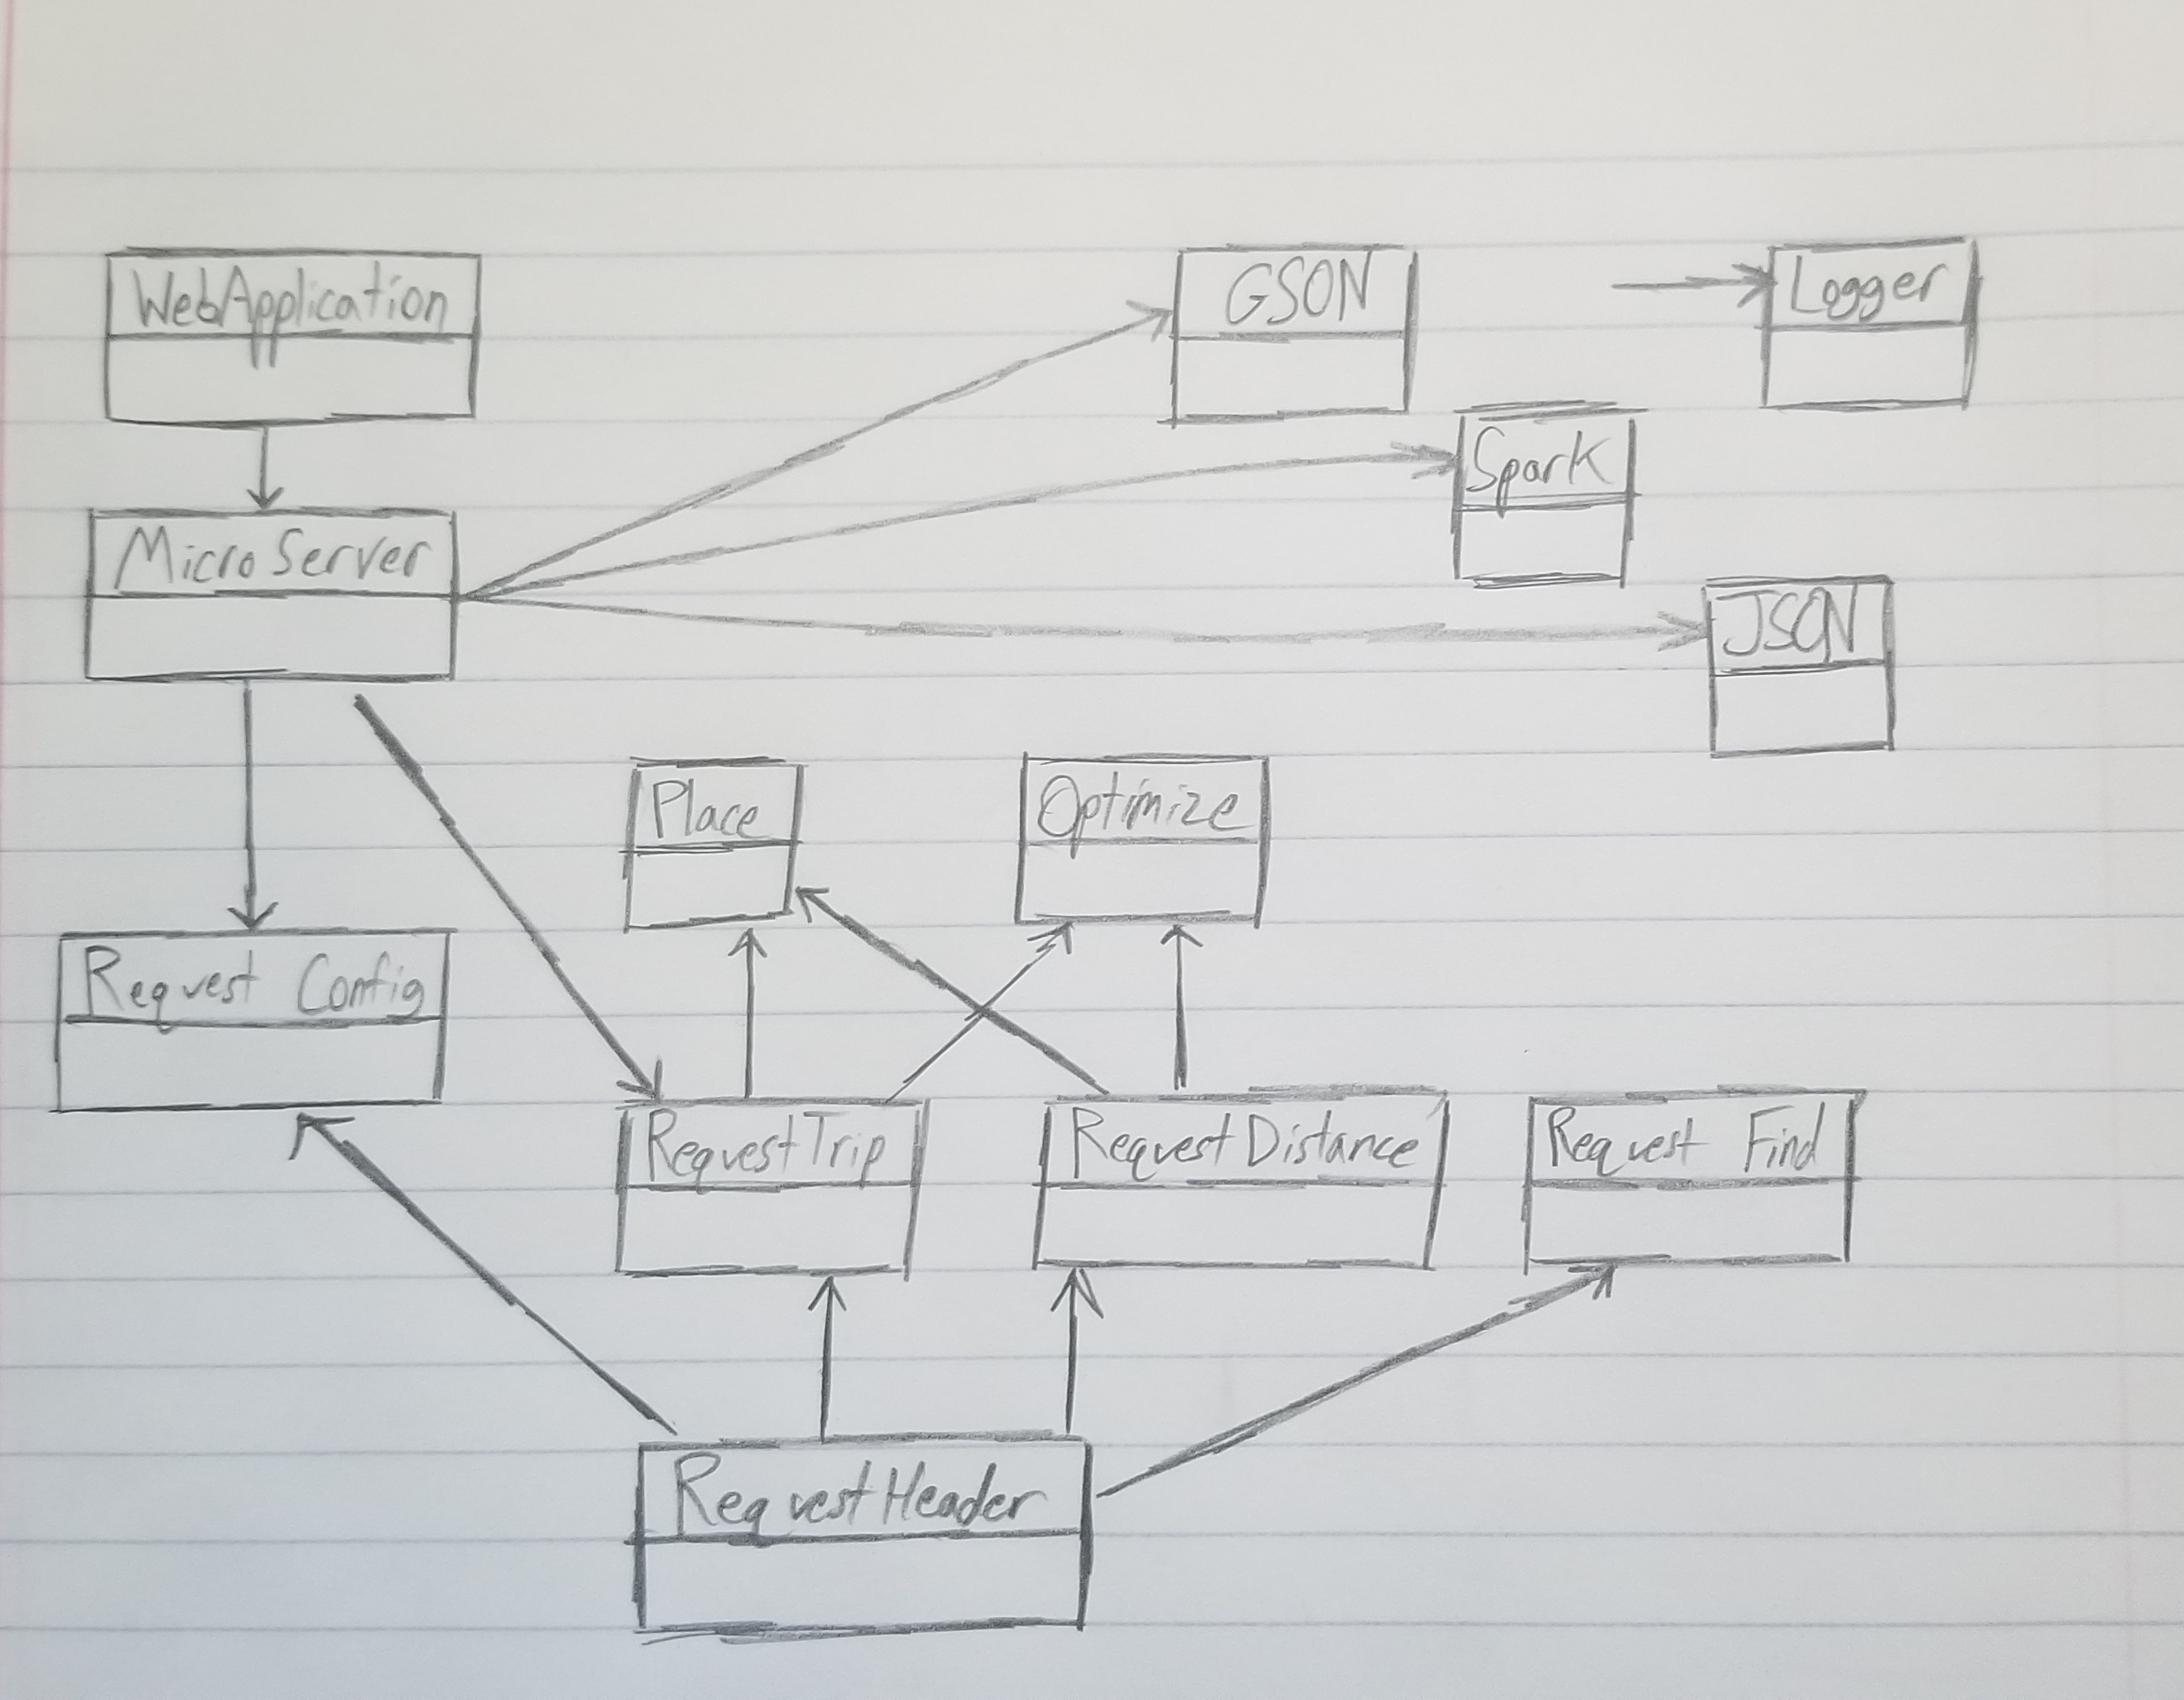 WebApplication
GSON
Logger
Spark
MicroServer
JSON
Place
Optimize
Request Config
RequestTrip
RequestDistance
Request Find
RequestHeader